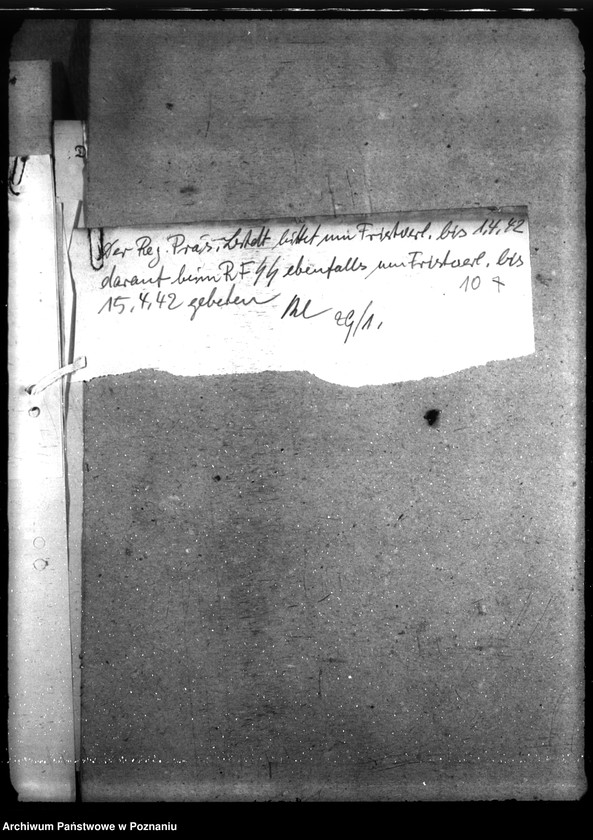 Der Reg. Präs. i. Lbstdt bittet um Fristverl. bis 1.4.42
darauf beim RFSS ebenfalls um Fristverl. bis
15.4.42 gebeten
10
29/1.
Archiwum Państwowe w Poznaniu